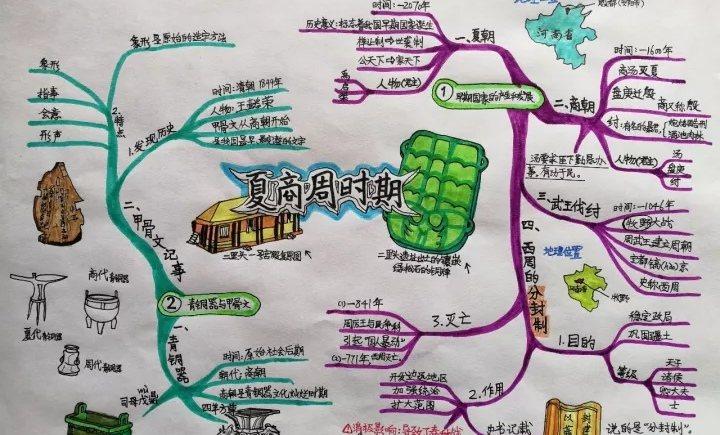 夏商周时期
① 早期国家的产生和发展
一、夏朝
时间:-2070年
禅让制→世袭制
公天下→家天下
人物(君主)
禹
启
桀
河南省
二、商朝
时间:-1600年
商汤灭夏
盘庚迁殷
商又称殷
人物(君主)
汤
盘庚
纣
三、武王伐纣
时间:-1046年
牧野大战
周武王建立周朝
史称西周
地理位置
四、西周的分封制
1.目的
稳定政局
巩固疆土
等级
天子
诸侯
士
2.作用
开发边远地区
加强统治
扩大范围
3.灭亡
(1)-841年
引起"国人暴动"
(2)-771年西周灭亡
史书记载
说的是"分封制"。
② 青铜器与甲骨文
一、青铜器
时间:原始社会后期
朝代:商朝
商朝是青铜器文化灿烂时期
司母戊鼎
四羊方尊
二、甲骨文记事
1.发现历史
时间:清朝1899年
人物:王懿荣
甲骨文从商朝开始
2.特点
象形是原始的造字方法
象形
指事
会意
形声
商代青铜器
夏代青铜器
周代青铜器
二里头一号宫殿复原图